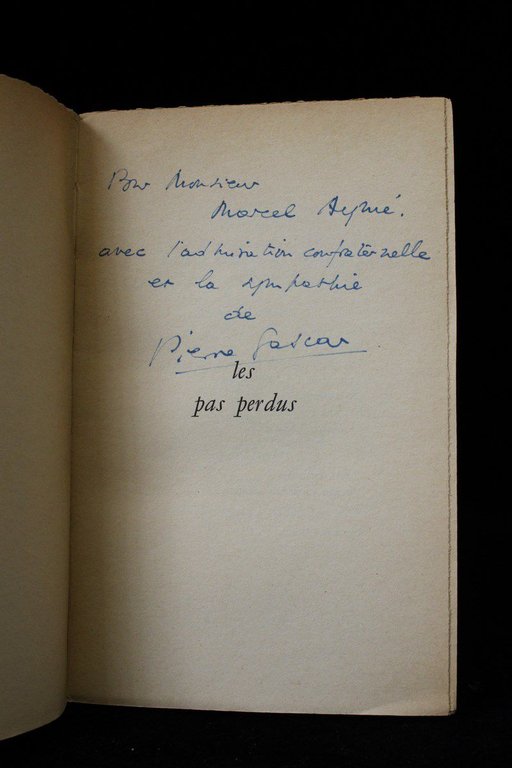 Pour Monsieur
Marcel Aymé.
avec l'admiration confraternelle
et la sympathie
de
Pierre Gascar
les
pas perdus